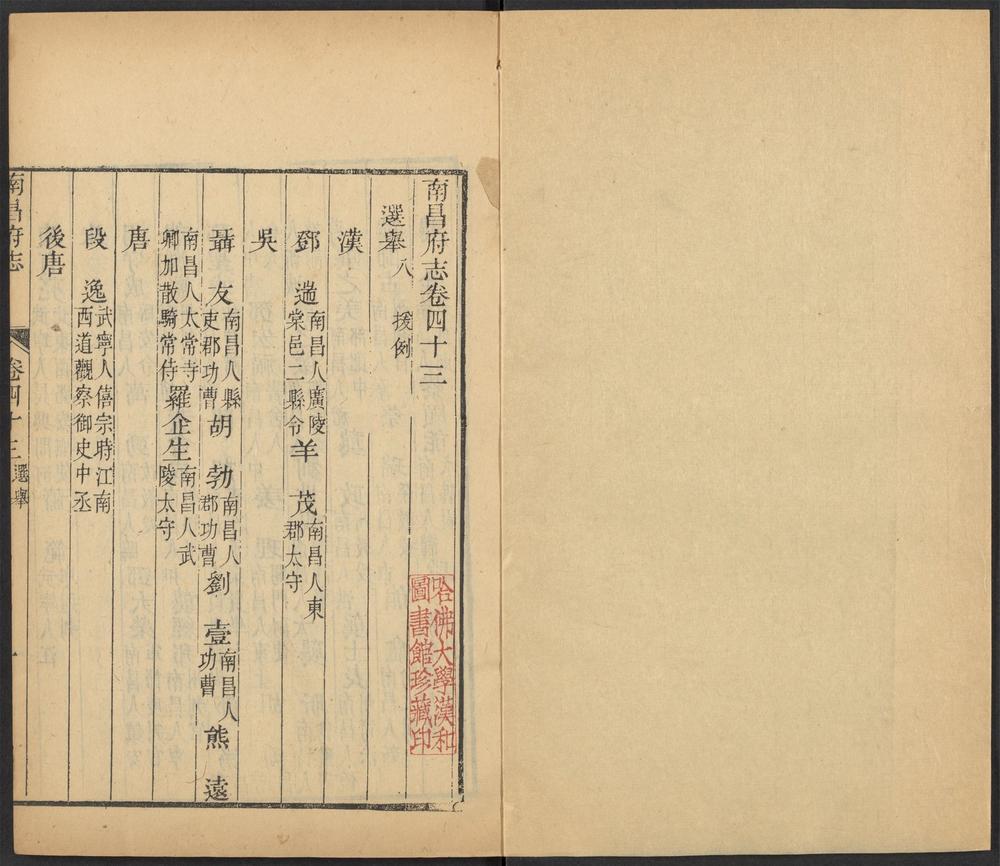 南昌府志卷四十三
選舉八 援例
漢
鄧 遄 南昌人廣陵棠邑二縣令 羊 茂 南昌人東郡太守
吳
聶 友 南昌人縣吏郡功曹 胡 勃 南昌人郡功曹 劉 壹 南昌人功曹 熊 遠
南昌人太常寺卿加散騎常侍 羅企生 南昌人武陵太守
唐
段 逸 武寧人僖宗時江南西道觀察御史中丞
後唐
南昌府志 卷四十三 選舉 一
哈佛大學漢和圖書館珍藏印